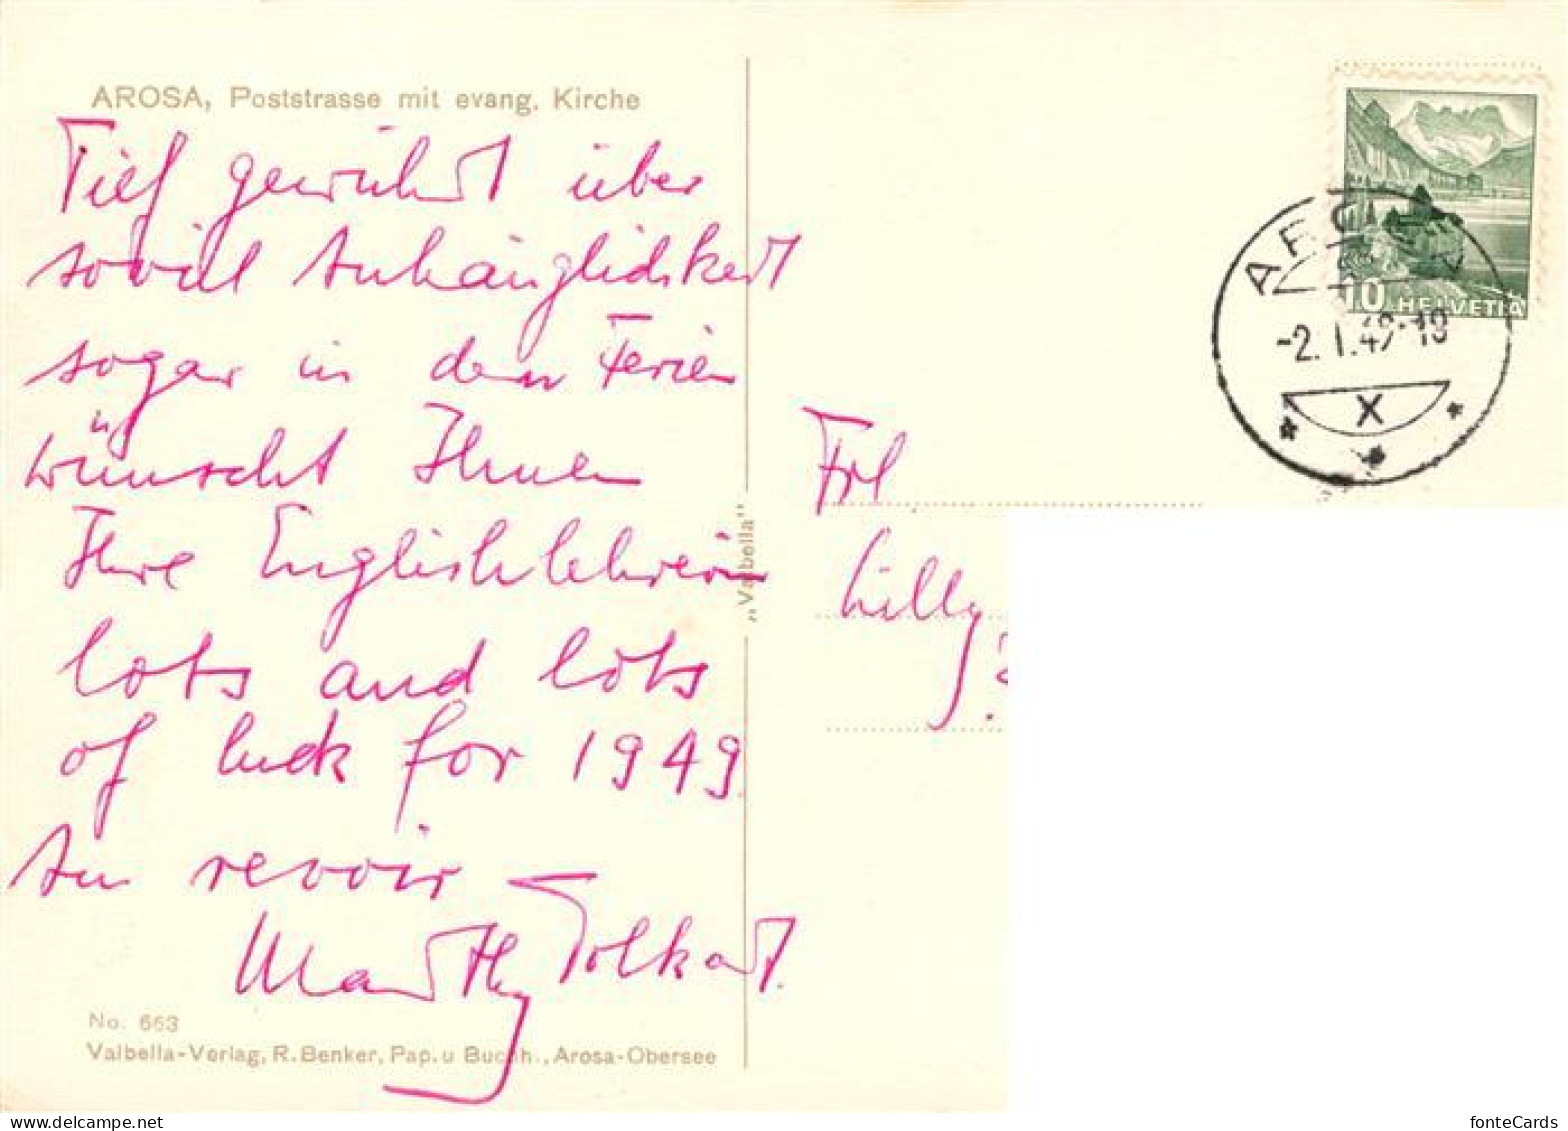 AROSA, Poststrasse mit evang. Kirche
Tief gerührt über
soviel Anhänglichkeit
sogar in den Ferien
wünscht Ihnen
Ihre Englischlehrerin
lots and lots
of luck for 1949.
Au revoir
Marthy Tolkart.
No. 663
Valbella-Verlag, R. Benker, Pap. u Buchh., Arosa-Obersee
„Valbella"
10 HELVETIA
AROSA
-2.I.49-18
X
Frl
Lilly
fonteCards